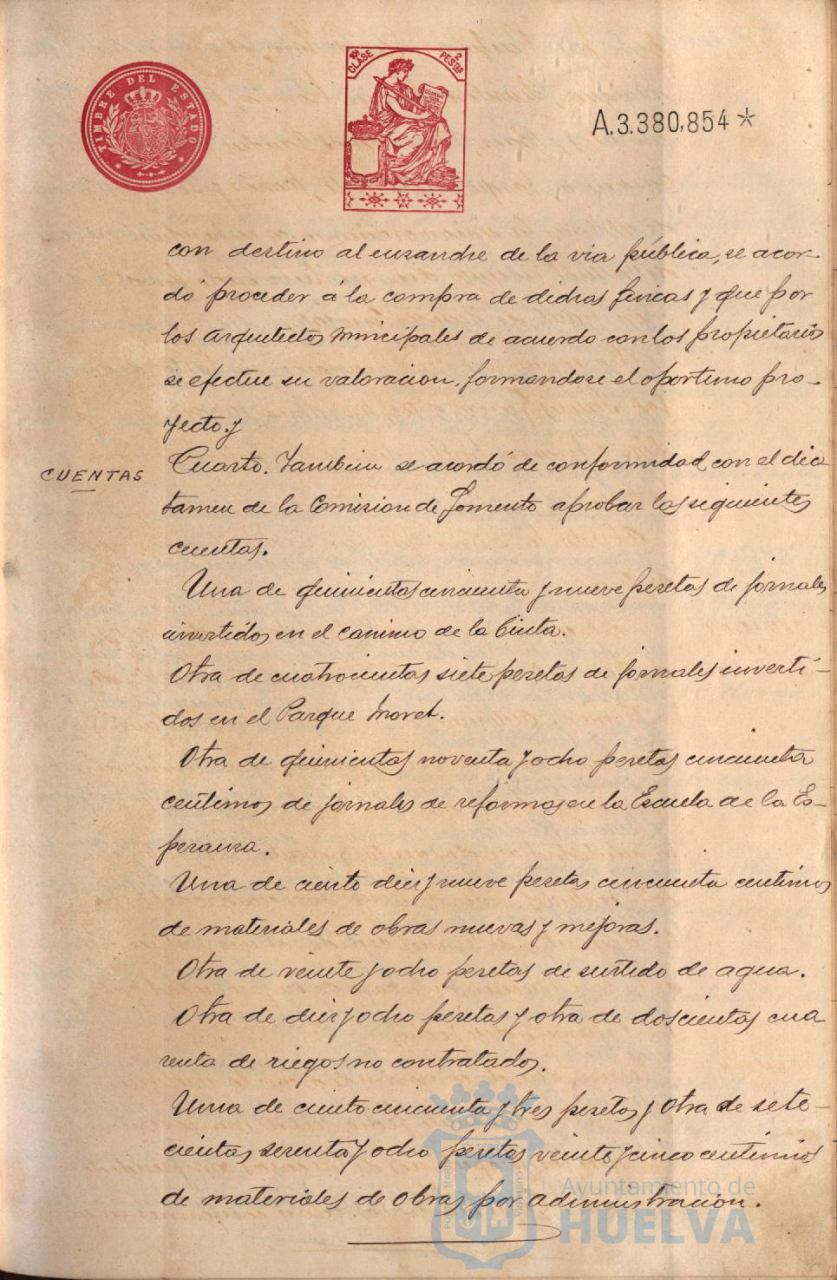 TIMBRE DEL ESTADO
10ª CLASE
2 PESTAS
A.3.380,854*
con destino al ensanche de la via pública, se acor-
dó proceder á la compra de dichas fincas y que por
los Arquitectos municipales de acuerdo con los propietarios
se efectue su valoracion, formandose el oportuno pro-
yecto. y
CUENTAS
Cuarto. Tambien se acordó de conformidad con el dic-
tamen de la Comision de Fomento aprobar las siguientes
cuentas.
Una de quinientas cincuenta y nueve pesetas de jornales
invertidos en el camino de la Cinta.
Otra de cuatrocientas siete pesetas de jornales inverti-
dos en el Parque Moret.
Otra de quinientas noventa y ocho pesetas cincuenta
centimos de jornales de reformas en la Escuela de la Es-
peranza.
Una de ciento diez y nueve pesetas cincuenta centimos
de materiales de obras nuevas y mejoras.
Otra de veinte y ocho pesetas de surtido de agua.
Otra de diez y ocho pesetas y otra de doscientas cua
renta de riegos no contratados.
Una de ciento cincuenta y tres pesetas y otra de sete-
cientas sesenta y ocho pesetas veinte y cinco centimos
de materiales de obras por administracion.
Ayuntamiento de
HUELVA